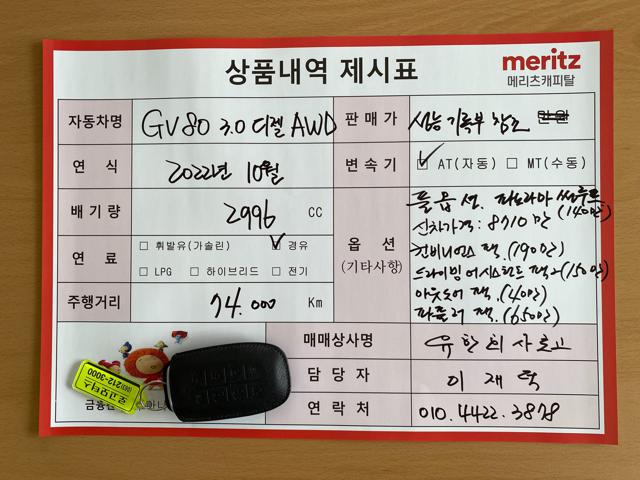 상품내역 제시표
meritz
메리츠캐피탈
자동차명 GV80 3.0 디젤 AWD
판매가 성능기록부 참조 만원
연 식 2022년 10월
변속기 ☑ AT(자동) □ MT(수동)
배기량 2996 CC
연 료 □ 휘발유(가솔린) ☑ 경유
□ LPG □ 하이브리드 □ 전기
주행거리 74.000 Km
옵 션
(기타사항)
풀옵션. 파노라마 썬루프
(140만)
신차가격: 8710만
컨비니언스 팩. (190만)
드라이빙 어시스턴트 팩2 (150만)
아웃도어 팩. (40만)
파퓰러 팩. (650만)
매매상사명
담 당 자 이재덕
연 락 처 010.4422.3878
로고모터스
212-3000